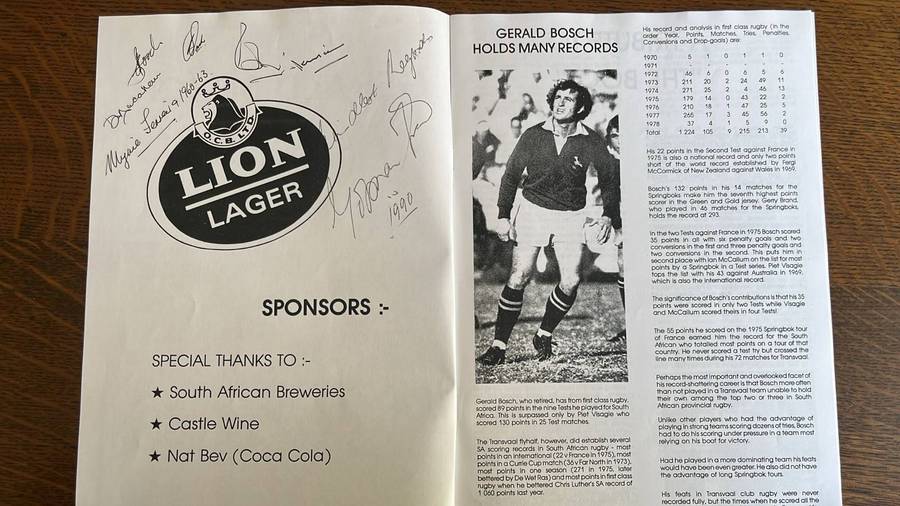 1960-63
O.C.B. LTD.
LION
LAGER
in
1990
SPONSORS :-
SPECIAL THANKS TO :-
★ South African Breweries
★ Castle Wine
★ Nat Bev (Coca Cola)
GERALD BOSCH
HOLDS MANY RECORDS
Gerald Bosch, who retired, has from first class rugby,
scored 89 points in the nine Tests he played for South
Africa. This is surpassed only by Piet Visagie who
scored 130 points in 25 Test matches.
The Transvaal flyhalf, however, did establish several
SA scoring records in South African rugby - most
points in an international (22 v France in 1975), most
points in a Currie Cup match (36 v Far North in 1973),
most points in one season (271 in 1975, later
bettered by De Wet Ras) and most points in first class
rugby when he bettered Chris Luther's SA record of
1 060 points last year.
His record and analysis in first class rugby (in the
order Year, Points, Matches, Tries, Penalties,
Conversions and Drop-goals) are:
1970 5 1 0 1 1 0
1971 - - - - - -
1972 46 6 0 6 5 6
1973 211 20 2 24 49 11
1974 271 25 2 4 46 13
1975 179 14 0 43 22 2
1976 210 18 1 47 25 5
1977 265 17 3 45 56 2
1978 37 4 1 5 9 0
Total 1 224 105 9 215 213 39
His 22 points in the Second Test against France in
1975 is also a national record and only two points
short of the world record established by Fergi
McCormick of New Zealand against Wales in 1969.
Bosch's 132 points in his 14 matches for the
Springboks make him the seventh highest points
scorer in the Green and Gold jersey. Gerry Brand,
who played in 46 matches for the Springboks,
holds the record at 293.
In the two Tests against France in 1975 Bosch scored
35 points in all with six penalty goals and two
conversions in the first and three penalty goals and
two conversions in the second. This puts him in
second place with Ian McCallum on the list for most
points by a Springbok in a Test series. Piet Visagie
tops the list with his 43 against Australia in 1969,
which is also the international record.
The significance of Bosch's contributions is that his 35
points were scored in only two Tests while Visagie
and McCallum scored theirs in four Tests!
The 55 points he scored on the 1975 Springbok tour
of France earned him the record for the South
African who totalled most points on a tour of that
country. He never scored a test try but crossed the
line many times during his 72 matches for Transvaal.
Perhaps the most important and overlooked facet of
his record-shattering career is that Bosch more often
than not played in a Transvaal team unable to hold
their own among the top two or three in South
African provincial rugby.
Unlike other players who had the advantage of
playing in strong teams scoring dozens of tries, Bosch
had to do his scoring under pressure in a team most
relying on his boot for victory.
Had he played in a more dominating team his feats
would have been even greater. He also did not have
the advantage of long Springbok tours.
His feats in Transvaal club rugby were never
recorded fully, but the times when he scored all the